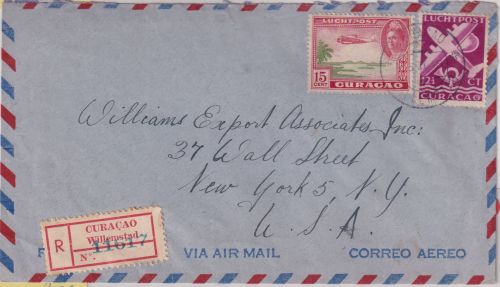 LUCHTPOST
15 CENT
CURAÇAO
LUCHTPOST
CT
CURACAO
Williams Export Associates, Inc:
37 Wall Street
New York 5, N.Y.
U. S. A.
R
CURAÇAO
Willemstad
No. 11617
VIA AIR MAIL
CORREO AEREO